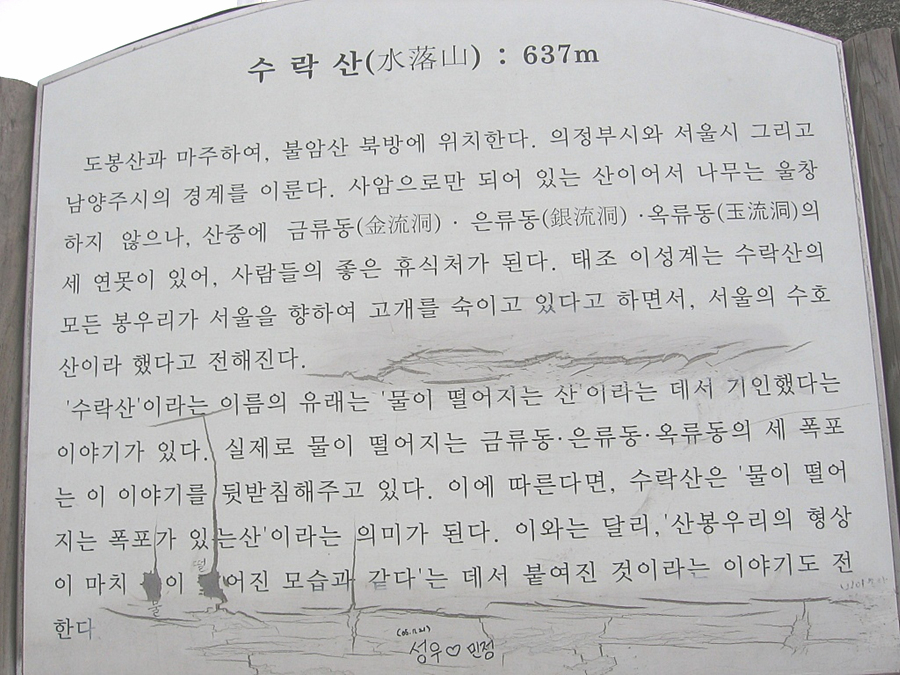 수락산(水落山) : 637m
도봉산과 마주하여, 불암산 북방에 위치한다. 의정부시와 서울시 그리고
남양주시의 경계를 이룬다. 사암으로만 되어 있는 산이어서 나무는 울창
하지 않으나, 산중에 금류동(金流洞)·은류동(銀流洞)·옥류동(玉流洞)의
세 연못이 있어, 사람들의 좋은 휴식처가 된다. 태조 이성계는 수락산의
모든 봉우리가 서울을 향하여 고개를 숙이고 있다고 하면서, 서울의 수호
산이라 했다고 전해진다.
'수락산'이라는 이름의 유래는 '물이 떨어지는 산'이라는 데서 기인했다는
이야기가 있다. 실제로 물이 떨어지는 금류동·은류동·옥류동의 세 폭포
는 이 이야기를 뒷받침해주고 있다. 이에 따른다면, 수락산은 '물이 떨어
지는 폭포가 있는산'이라는 의미가 된다. 이와는 달리, '산봉우리의 형상
이 마치 이 어진 모습과 같다'는 데서 붙여진 것이라는 이야기도 전
떨
물
한다
성우♡민정